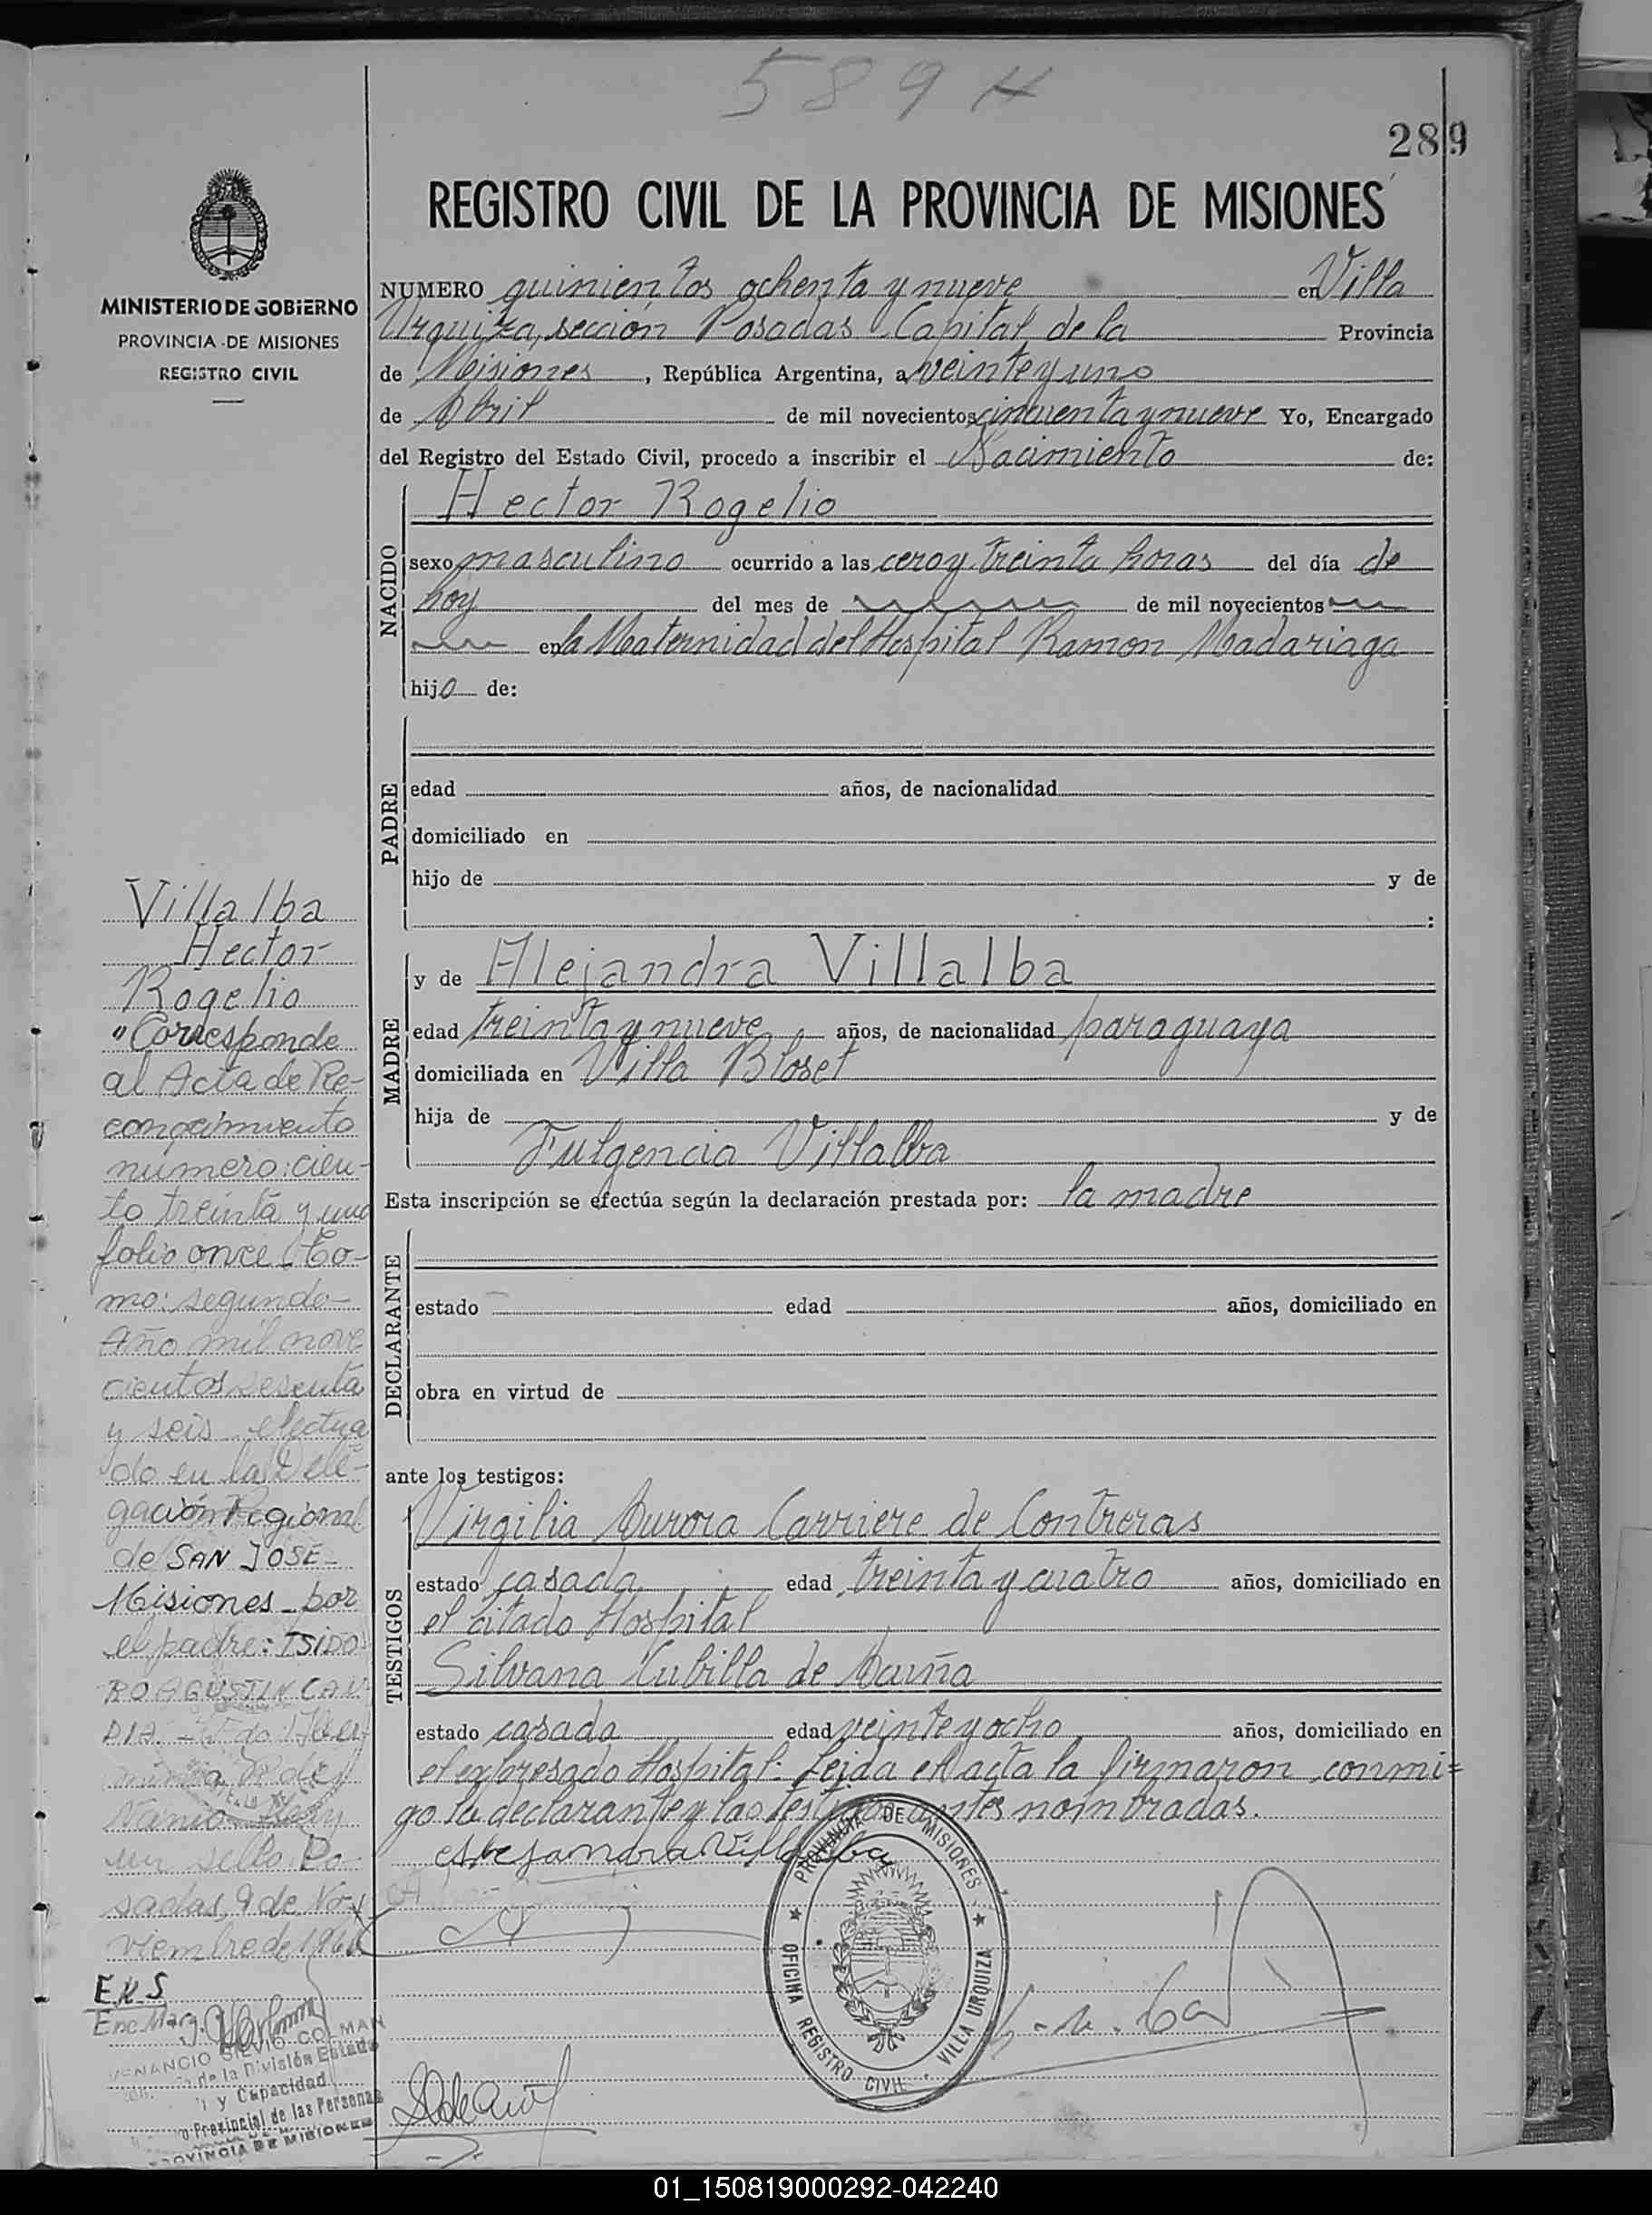 589 H
289
REGISTRO CIVIL DE LA PROVINCIA DE MISIONES
MINISTERIO DE GOBIERNO
PROVINCIA DE MISIONES
REGISTRO CIVIL
NUMERO quinientos ochenta y nueve en Villa
Urquiza, sección Posadas Capital de la Provincia
de Misiones, República Argentina, a veinte y uno
de Abril de mil novecientos cincuenta y nueve Yo, Encargado
del Registro del Estado Civil, procedo a inscribir el Nacimiento de:
NACIDO
Hector Rogelio
sexo masculino ocurrido a las cero y treinta horas del día de
hoy del mes de de mil novecientos
en la Maternidad del Hospital Ramon Madariaga
hijo de:
PADRE
edad años, de nacionalidad
domiciliado en
hijo de y de
:
MADRE
y de Alejandra Villalba
edad treinta y nueve años, de nacionalidad paraguaya
domiciliada en Villa Bloset
hija de y de
Fulgencia Villalba
Esta inscripción se efectúa según la declaración prestada por: la madre
DECLARANTE
estado edad años, domiciliado en
obra en virtud de
ante los testigos:
TESTIGOS
Virgilia Aurora Carriere de Contreras
estado casada edad treinta y cuatro años, domiciliado en
el citado Hospital
Silvana Cubilla de Acuña
estado casada edad veinte y ocho años, domiciliado en
el expresado Hospital. Leida el acta la firmaron conmi=
go la declarante y las testigos antes nombradas.
Alejandra Villalba
PROVINCIA DE MISIONES
OFICINA REGISTRO CIVIL VILLA URQUIZA
Villalba
Hector
Rogelio
"Corresponde
al Acta de Re-
conocimiento
numero: cien-
to treinta y uno
folio once To-
mo: segundo
Año mil nove
cientos sesenta
y seis efectua
do en la Dele-
gación Regional
de SAN JOSÉ
Misiones por
el padre: ISIDO
RO AGUSTIN CAN
DIA.
un sello Po-
sadas, 9 de No-
viembre de 1966
E.K.S
Enc. Marg.
VENANCIO SILVIO COLMAN
de la División Estado
y Capacidad
Provincial de las Personas
PROVINCIA DE MISIONES
01_150819000292-042240